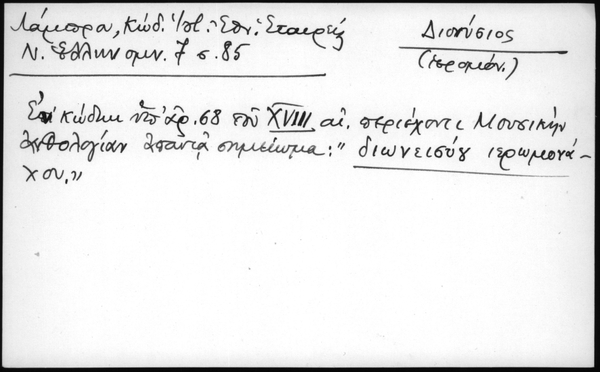 Λάμπρου, Κώδ. Ἱστ. Ἐθν. Ἑταιρείας
Ν. Ἑλληνομν. 7 σ. 85
Διονύσιος
(ἱερομόν.)
Ἐν κώδικι ὑπ' ἀρ. 68 τοῦ XVIII αἰ. περιέχοντι Μουσικήν
ἀνθολογίαν ἀπαντᾷ σημείωμα: " διωνεισύου ιερωμονά-
χου."